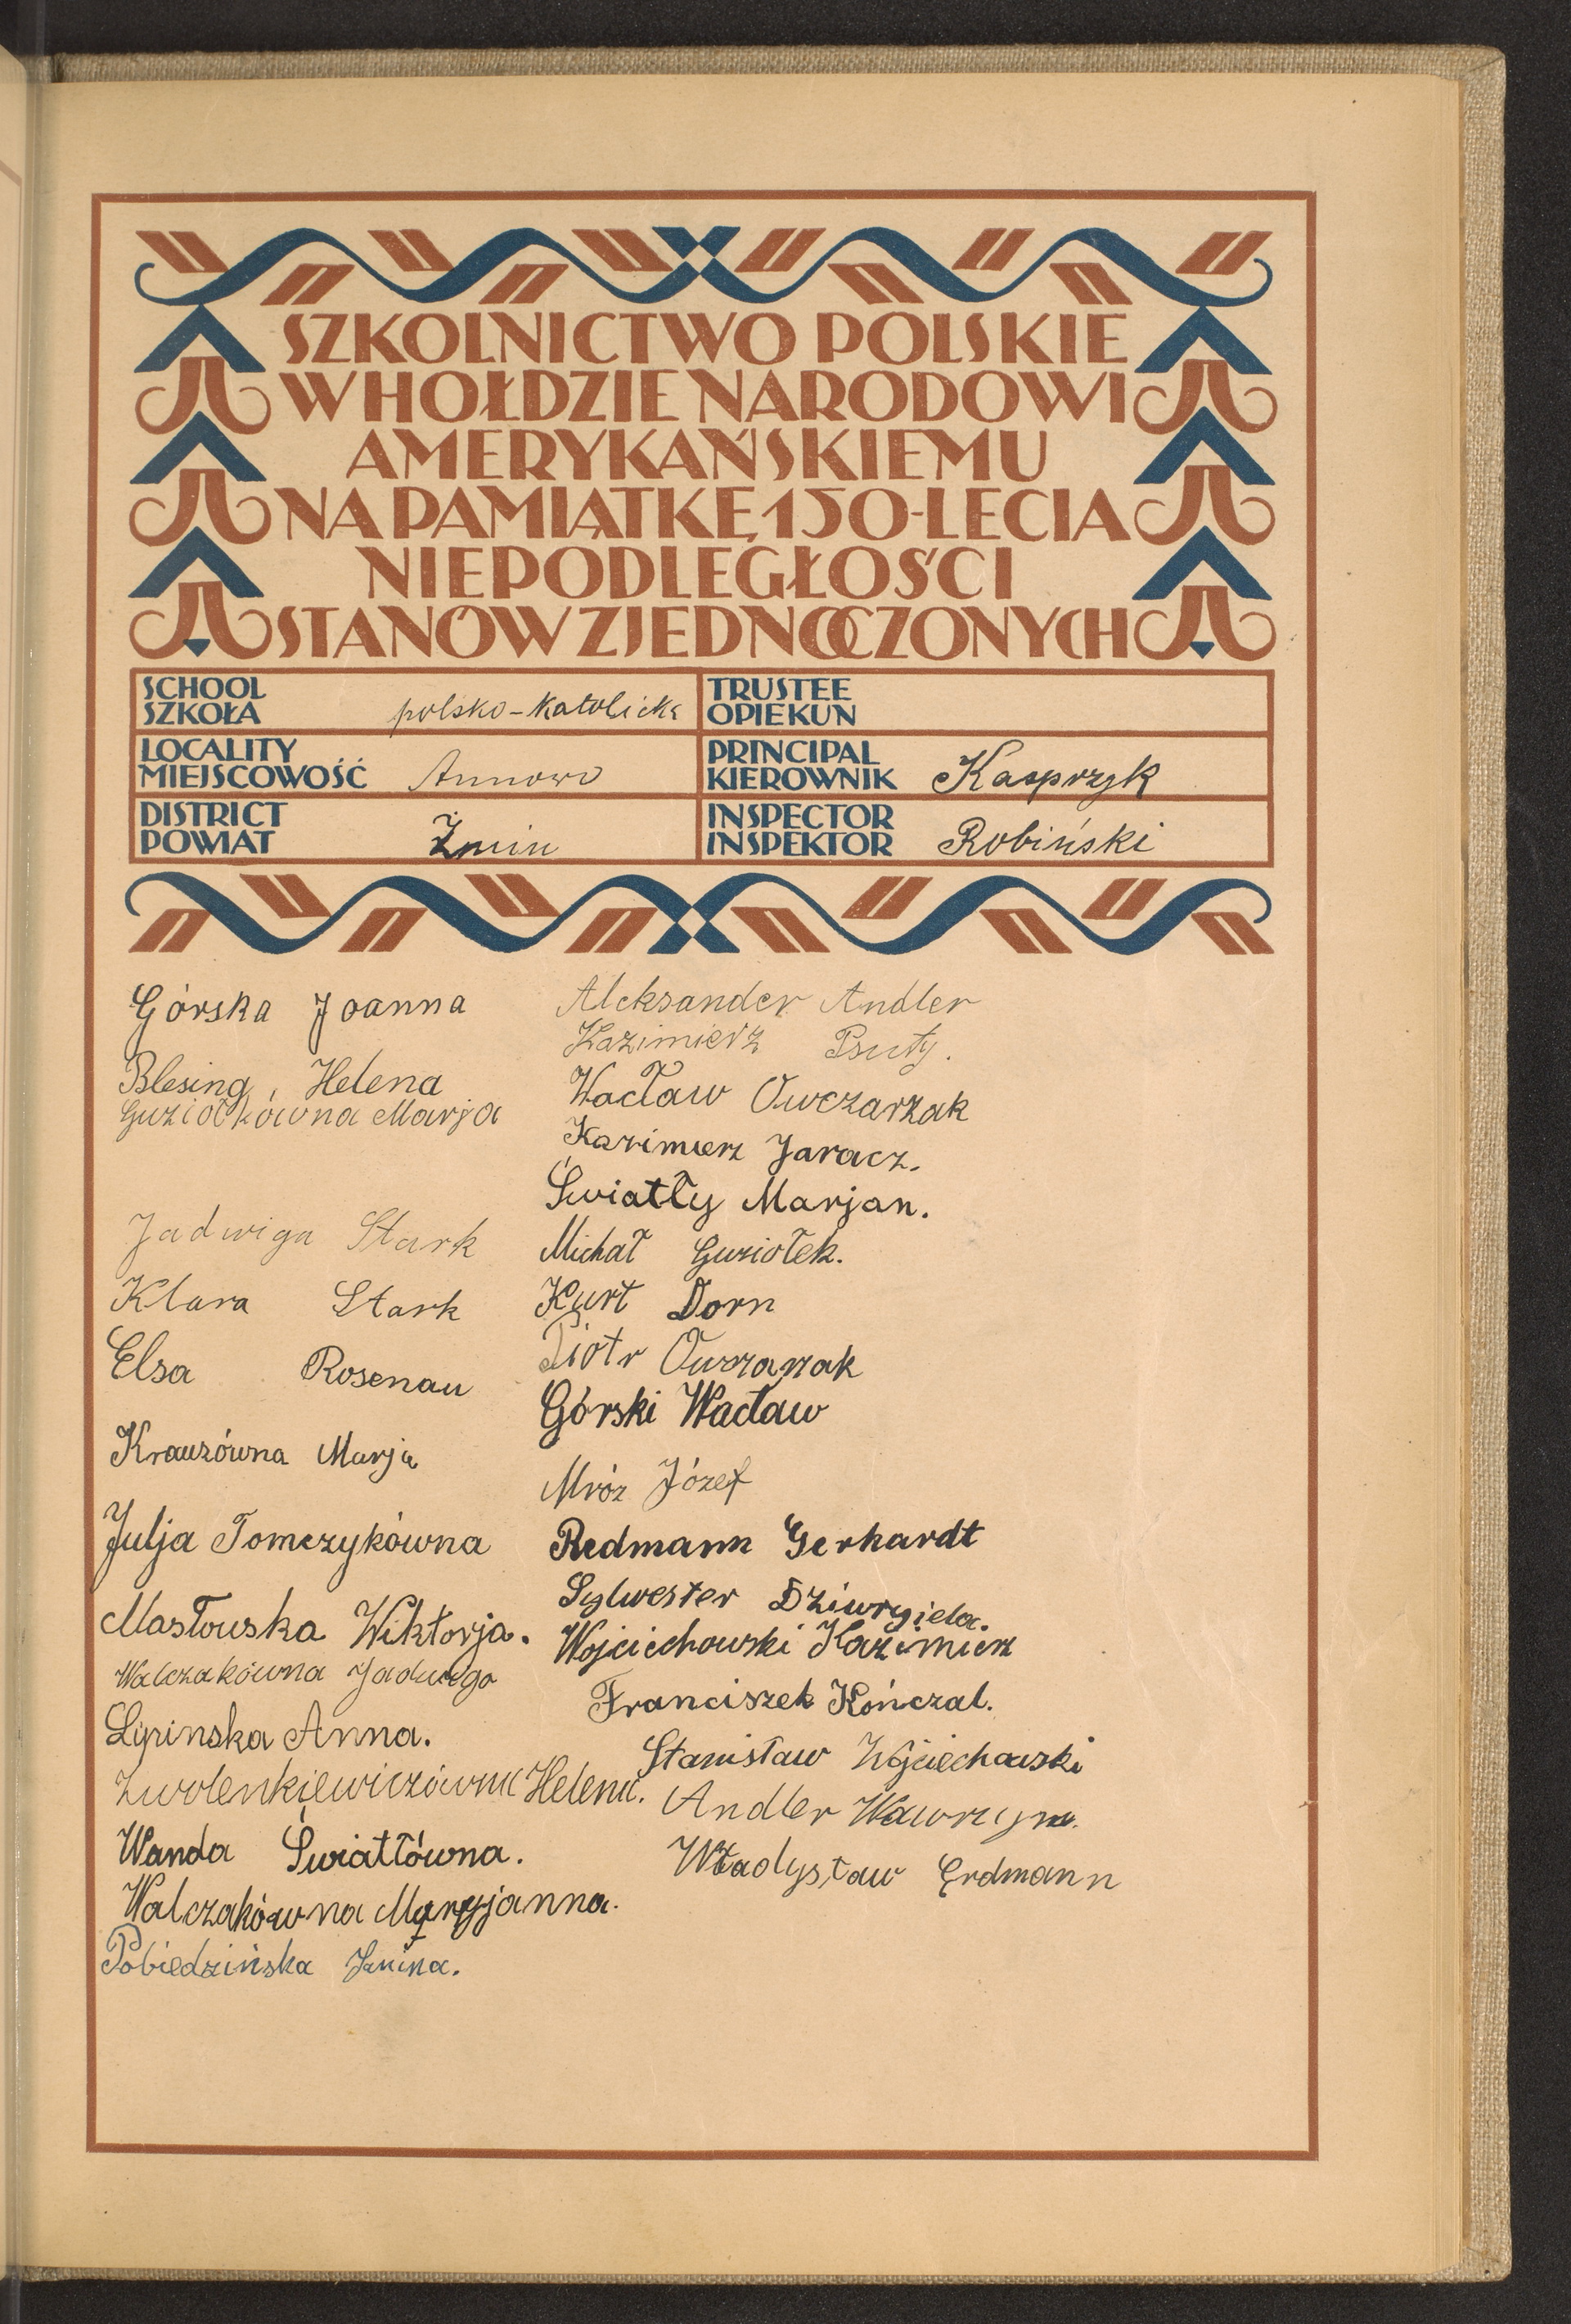 SZKOLNICTWO POLSKIE
W HOŁDZIE NARODOWI
AMERYKAŃSKIEMU
NA PAMIĄTKĘ 150-LECIA
NIEPODLEGŁOŚCI
STANÓW ZJEDNOCZONYCH
SCHOOL
SZKOŁA polsko-katolicka
TRUSTEE
OPIEKUN
LOCALITY
MIEJSCOWOŚĆ Annowo
PRINCIPAL
KIEROWNIK Kasprzyk
DISTRICT
POWIAT Żnin
INSPECTOR
INSPEKTOR Robiński
Górska Joanna
Blesing, Helena
Guziołkówna Marja
Jadwiga Stark
Klara Stark
Elsa Rosenau
Krauzówna Marja
Julja Tomczykówna
Masłowska Wiktorja.
Walczakówna Jadwiga
Lipinska Anna.
Zwolenkiewiczówna Helena.
Wanda Światłówna.
Walczakówna Maryjanna.
Pobiedzińska Janina.
Aleksander Andler
Kazimierz Psuty.
Wacław Owczarzak
Kazimierz Jaracz.
Światły Marjan.
Michał Guziołek.
Kurt Dorn
Piotr Owczarzak
Górski Wacław
Mróz Józef
Redmann Gerhardt
Sylwester Dziwrgiela.
Wojciechowski Kazimierz
Franciszek Kończal.
Stanisław Wojciechowski
Andler Wawrzyn.
Władysław Erdmann